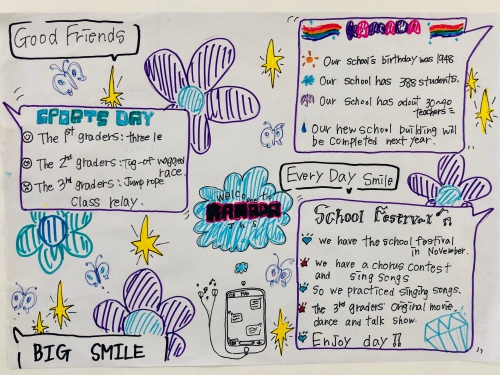 Good Friends
SPORTS DAY
The 1st graders: three le
The 2nd graders: Tug-of wagged
race.
The 3rd graders: Jump rope
Class relay.
BIG SMILE
Welcome to
Our school's birthday was 1948
Our school has 388 students.
Our school has adout 30~40
teachers
Our new school building will
be completed next year.
Every Day Smile
School Festerval
we have the school festival
in November.
we have a chorus contest
and sing songs
So we practiced singing songs.
the 3rd graders' Original movie,
dance and talk show.
Enjoy day!!